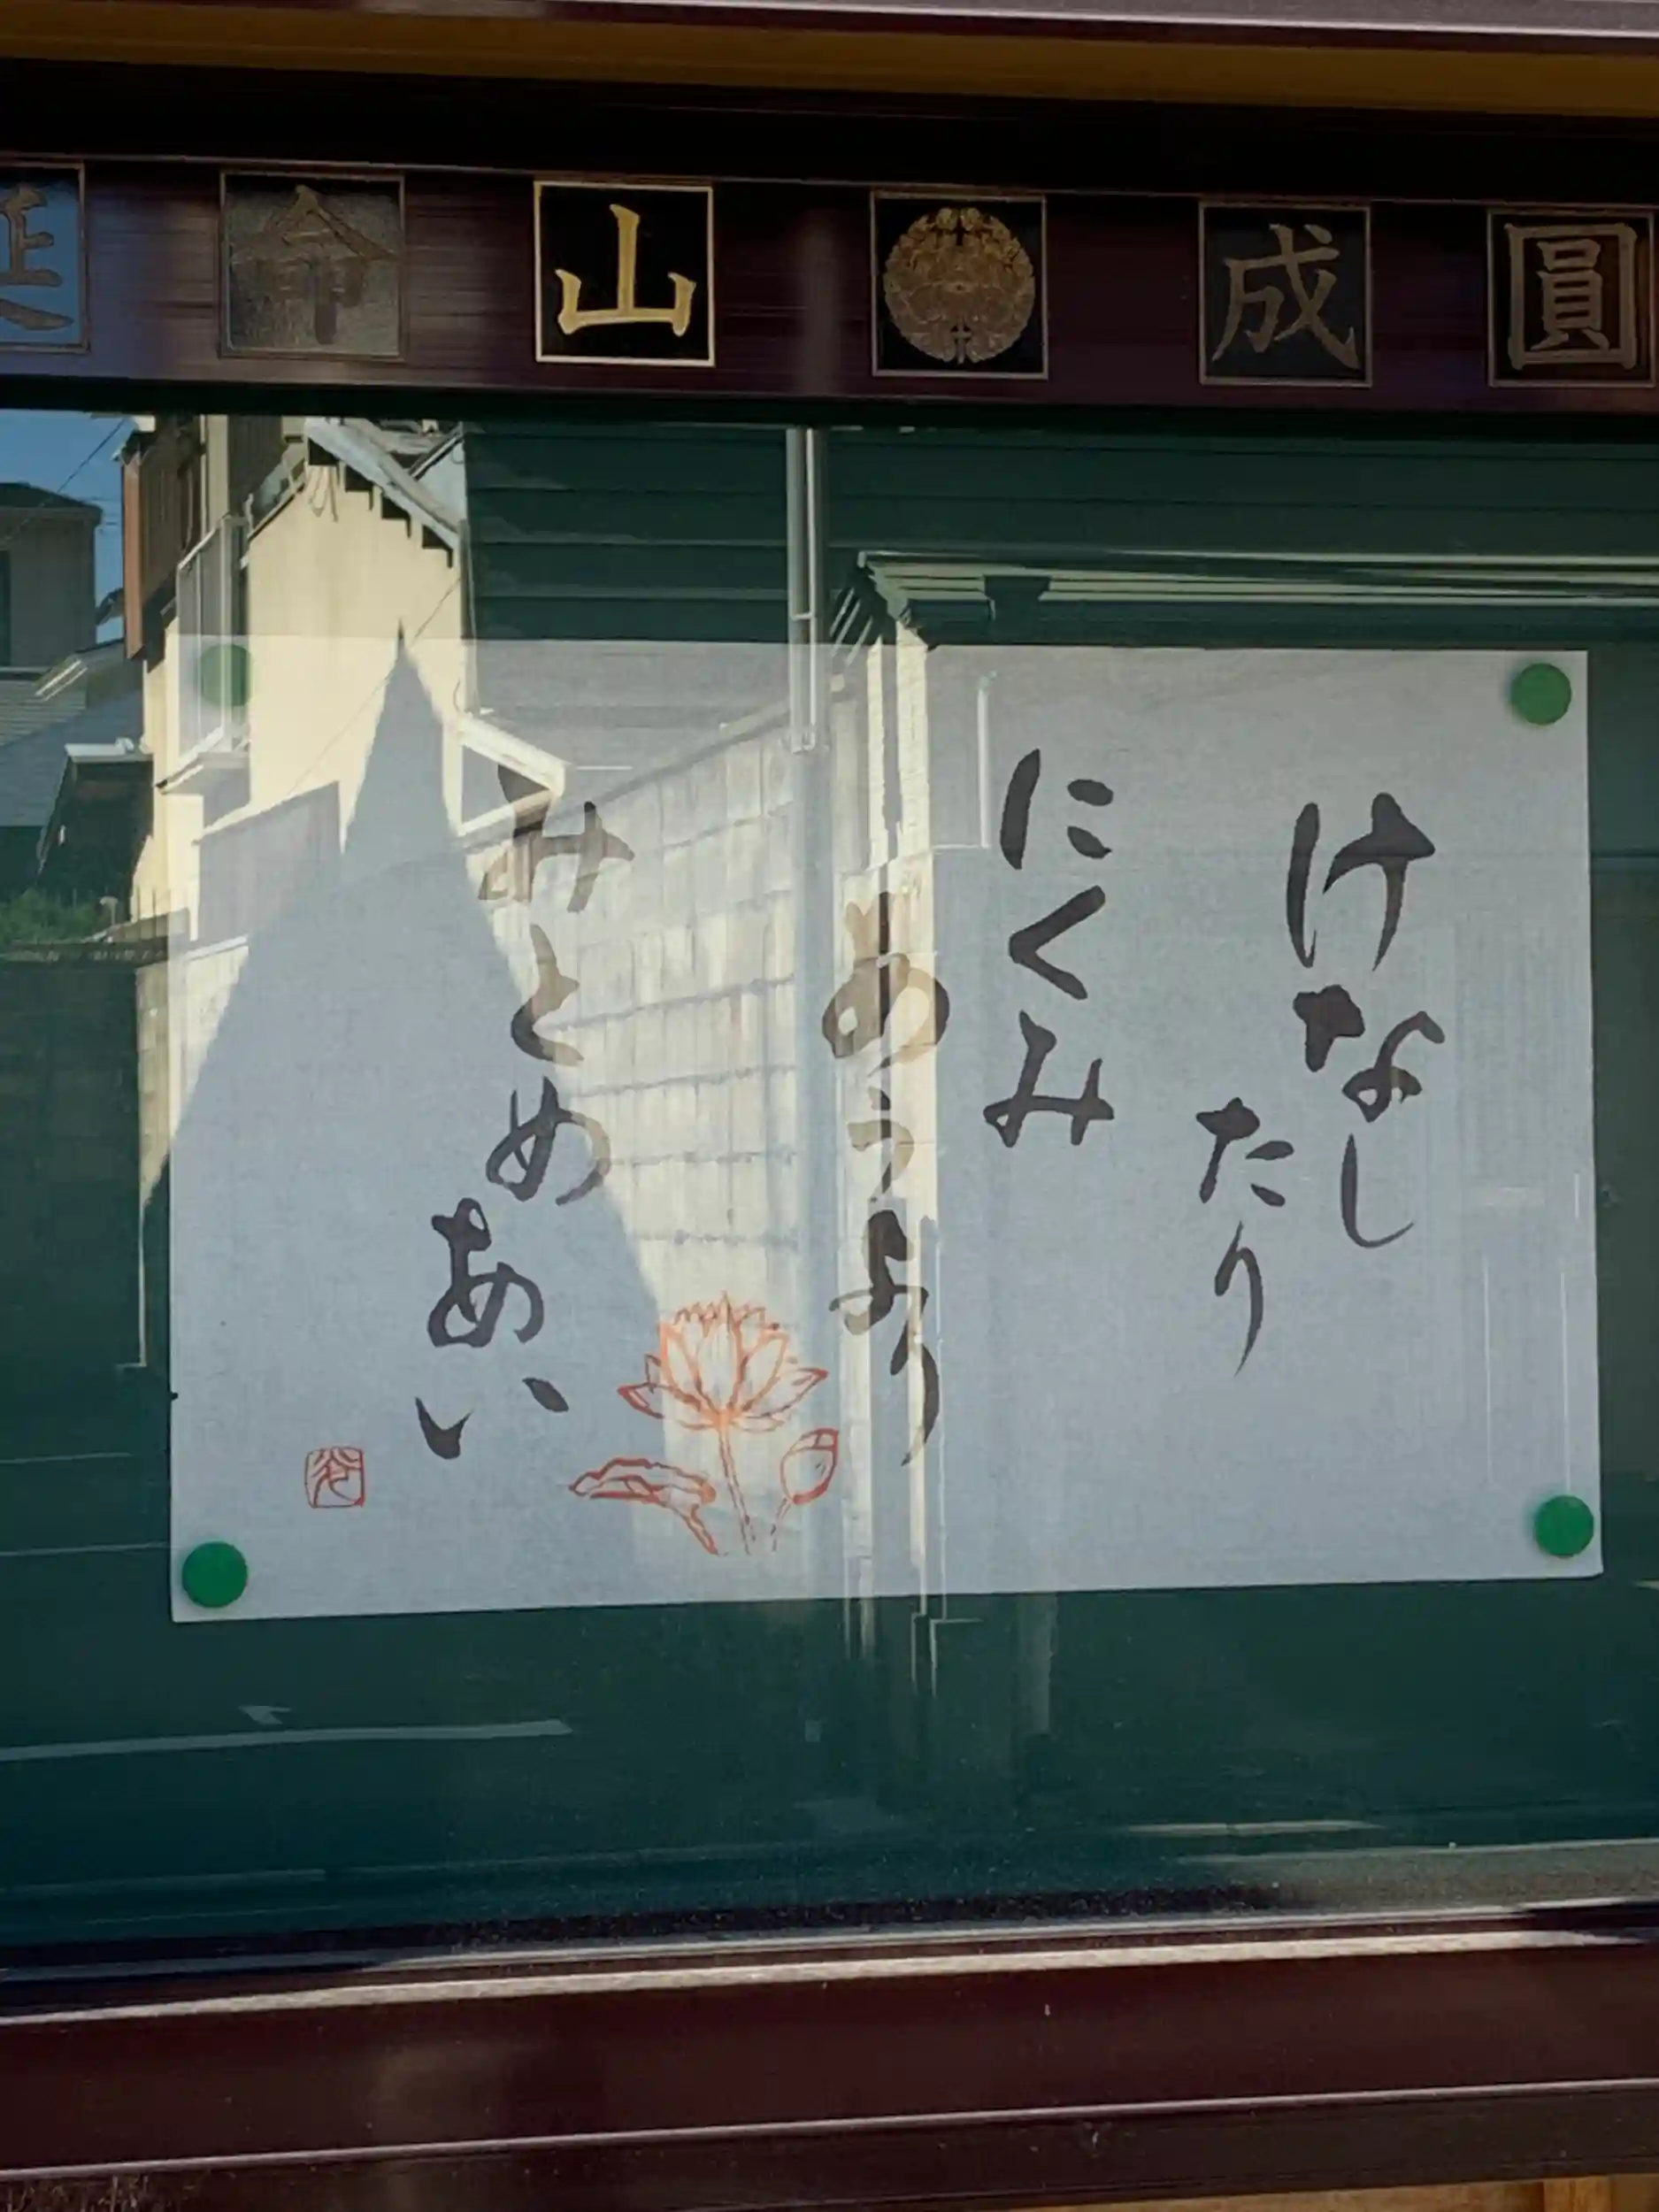 延命山 成圓
けなし
たり
にくみ
あうより
みとめあい